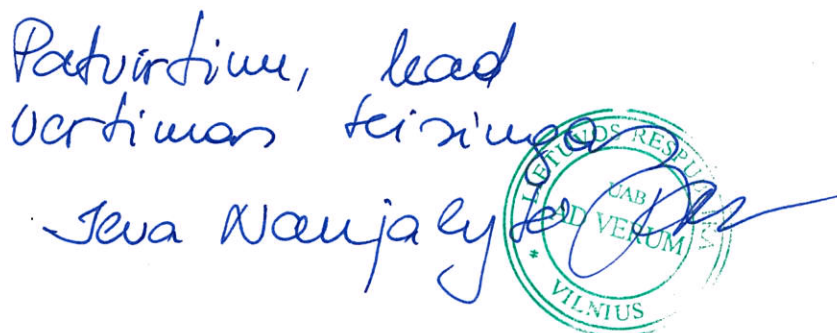 Patvirtinu, kad
vertimas teisingas
Ieva Naujalytė
LIETUVOS RESPUBLIKA
UAB
AD VERUM
* VILNIUS